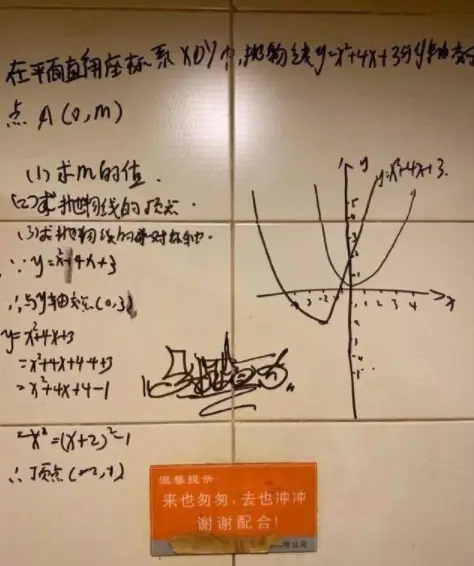 在平面直角座标系XOY中,抛物线y=x²+4x+3与y轴交于
点A(0,m)
(1)求m的值.
(2)求抛物线的顶点.
(3)求抛物线的对称轴.
∵y=x²+4x+3
∴与y轴交点(0,3)
y=x²+4x+3
=x²+4x+4-4+3
=x²+4x+4-1
=(x+2)²-1
∴顶点
y
y=x²+4x+3
5
4
3
2
1
-3 -2 -1
1 2 3 4
x
温馨提示
来也匆匆,去也冲冲
谢谢配合!
有限公司